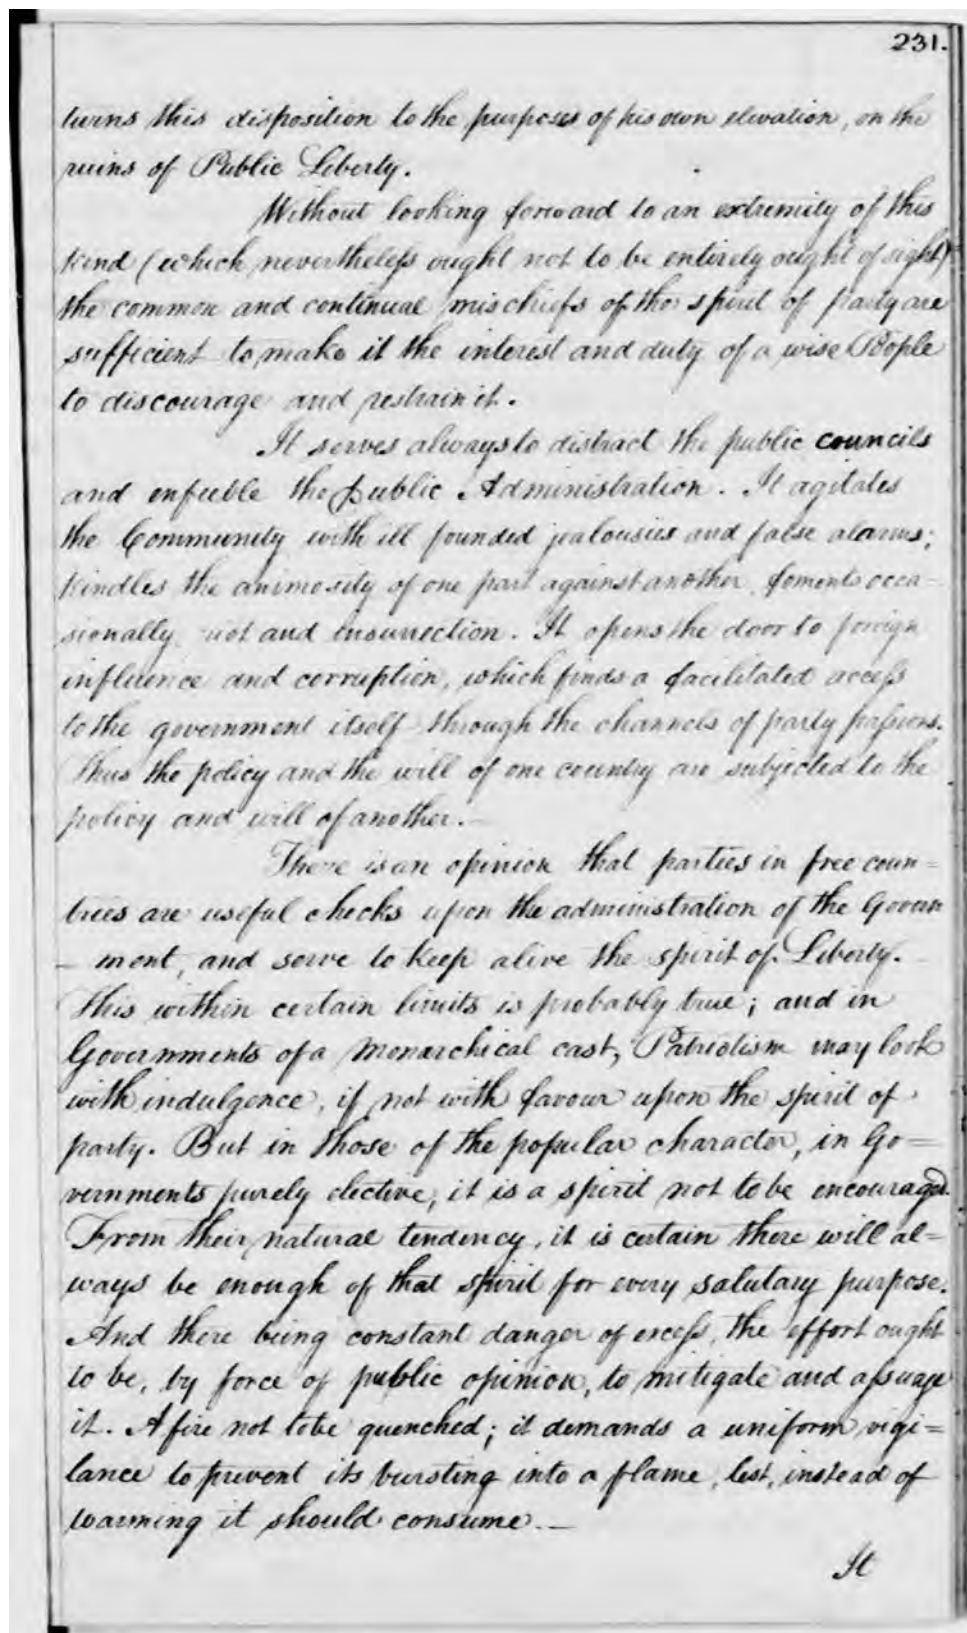 231.
turns this disposition to the purposes of his own elevation, on the
ruins of Public Liberty.
Without looking forward to an extremity of this
kind (which nevertheless ought not to be entirely ought of sight)
the common and continual mischiefs of the spirit of party are
sufficient to make it the interest and duty of a wise People
to discourage and restrain it.
It serves always to distract the public councils
and enfeeble the public Administration. It agitates
the Community with ill founded jealousies and false alarms;
kindles the animosity of one part against another, foments occa=
sionally riot and insurrection. It opens the door to foreign
influence and corruption, which finds a facilitated access
to the government itself through the channels of party passions.
Thus the policy and the will of one country are subjected to the
policy and will of another.—
There is an opinion that parties in free coun=
tries are useful checks upon the administration of the Govern
– ment, and serve to keep alive the spirit of Liberty.
This within certain limits is probably true; and in
Governments of a Monarchical cast, Patriotism may look
with indulgence, if not with favour upon the spirit of
party. But in those of the popular character, in Go=
vernments purely elective, it is a spirit not to be encouraged.
From their natural tendency, it is certain there will al=
ways be enough of that spirit for every salutary purpose.
And there being constant danger of excess, the effort ought
to be, by force of public opinion, to mitigate and assuage
it. A fire not to be quenched; it demands a uniform vigi=
lance to prevent its bursting into a flame, lest, instead of
warming it should consume.—
It